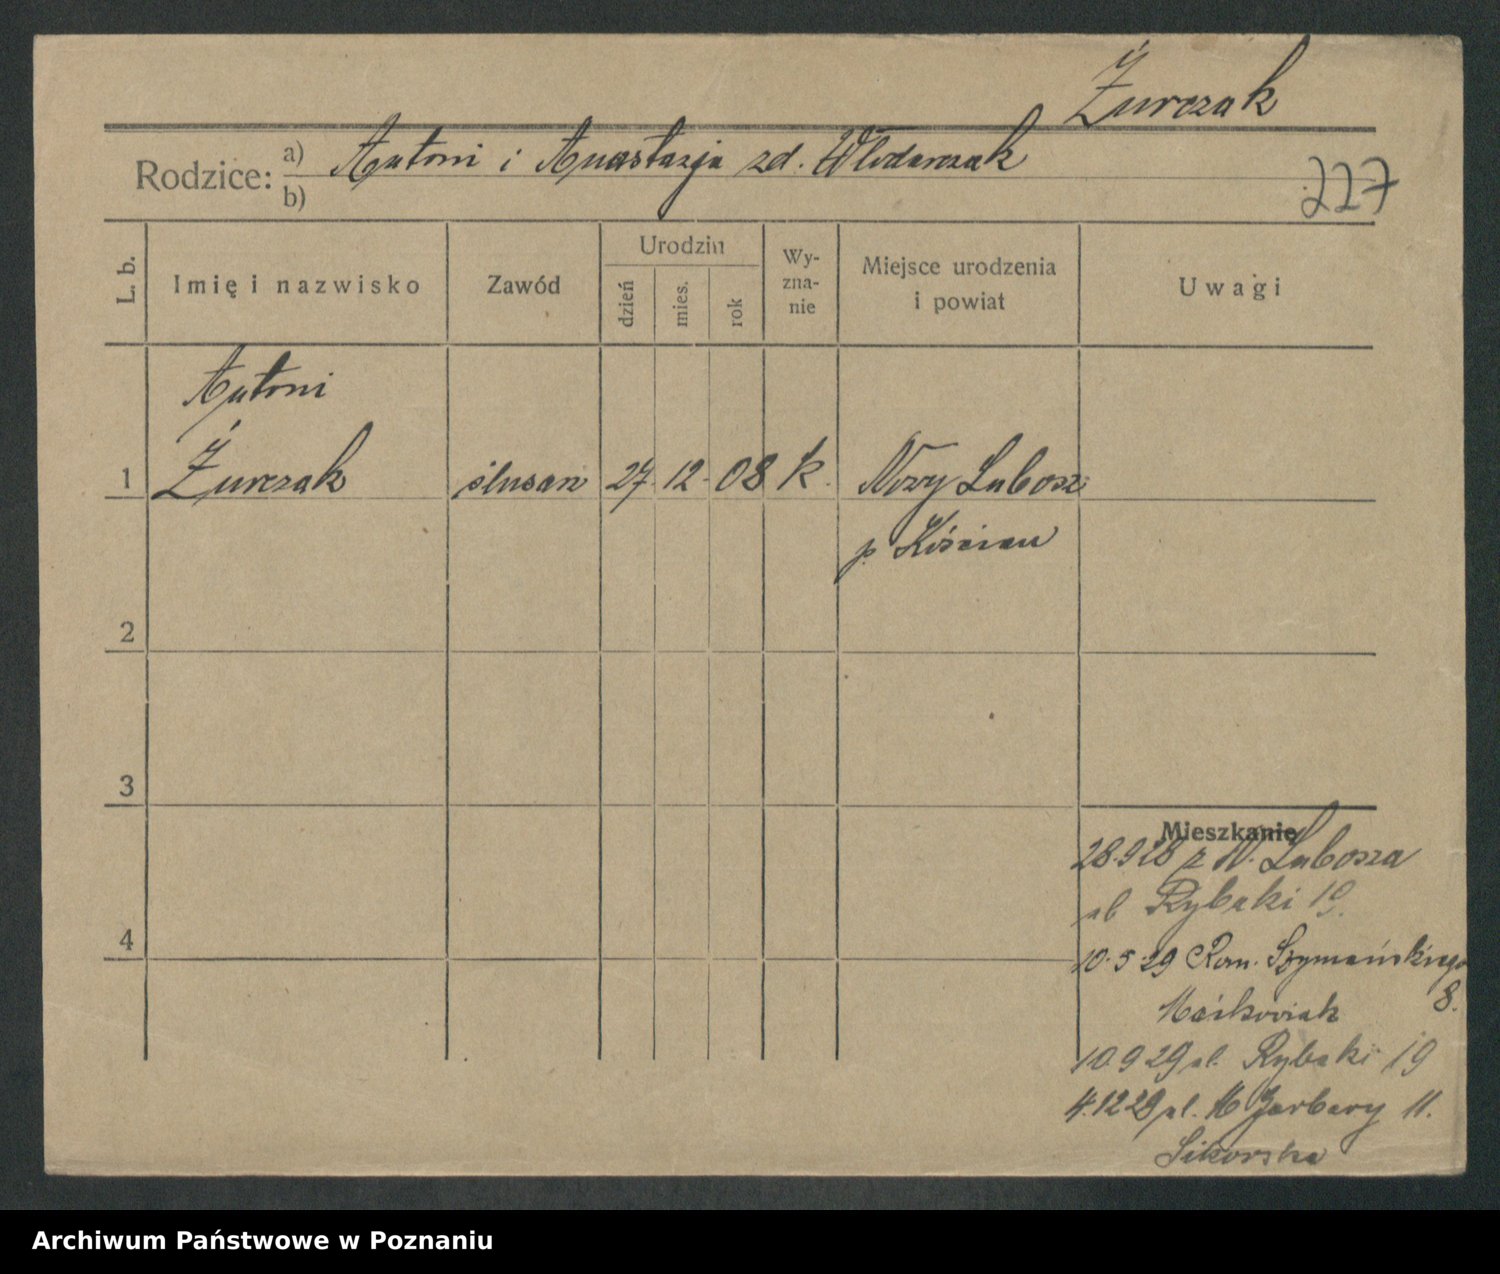 Żurczak
Rodzice: a) Antoni i Anastazja zd. Włodarczak
b)
227
L. b. Imię i nazwisko Zawód Urodzin dzień mies. rok Wyznanie Miejsce urodzenia i powiat Uwagi
Antoni
1 Żurczak ślusarz 27. 12. 08 k. Nowy Lubosz
p. Kościan
2
3
Mieszkanie
28.9.28 z N. Lubosza
Rybaki 19.
4
10.5.29 Rom. Szymańskiego
8.
Maćkowiak
10.9.29 Rybaki 19
4.12.29 M Garbary 11.
Sikorska
Archiwum Państwowe w Poznaniu